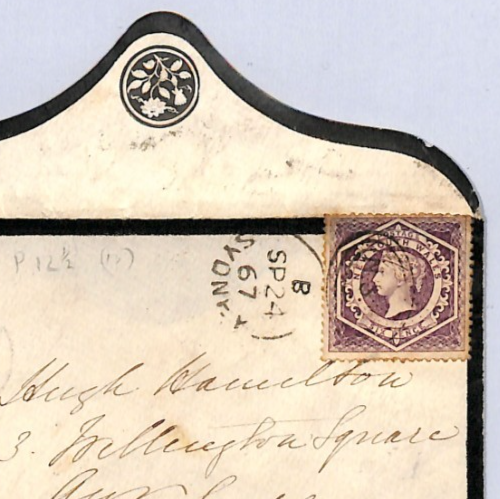 P 12½ (11)
SYDNEY
B
SP 24
67
POSTAGE
NEW SOUTH WALES
SIX PENCE
Hugh Hamilton
3. Wellington Square
Ayr